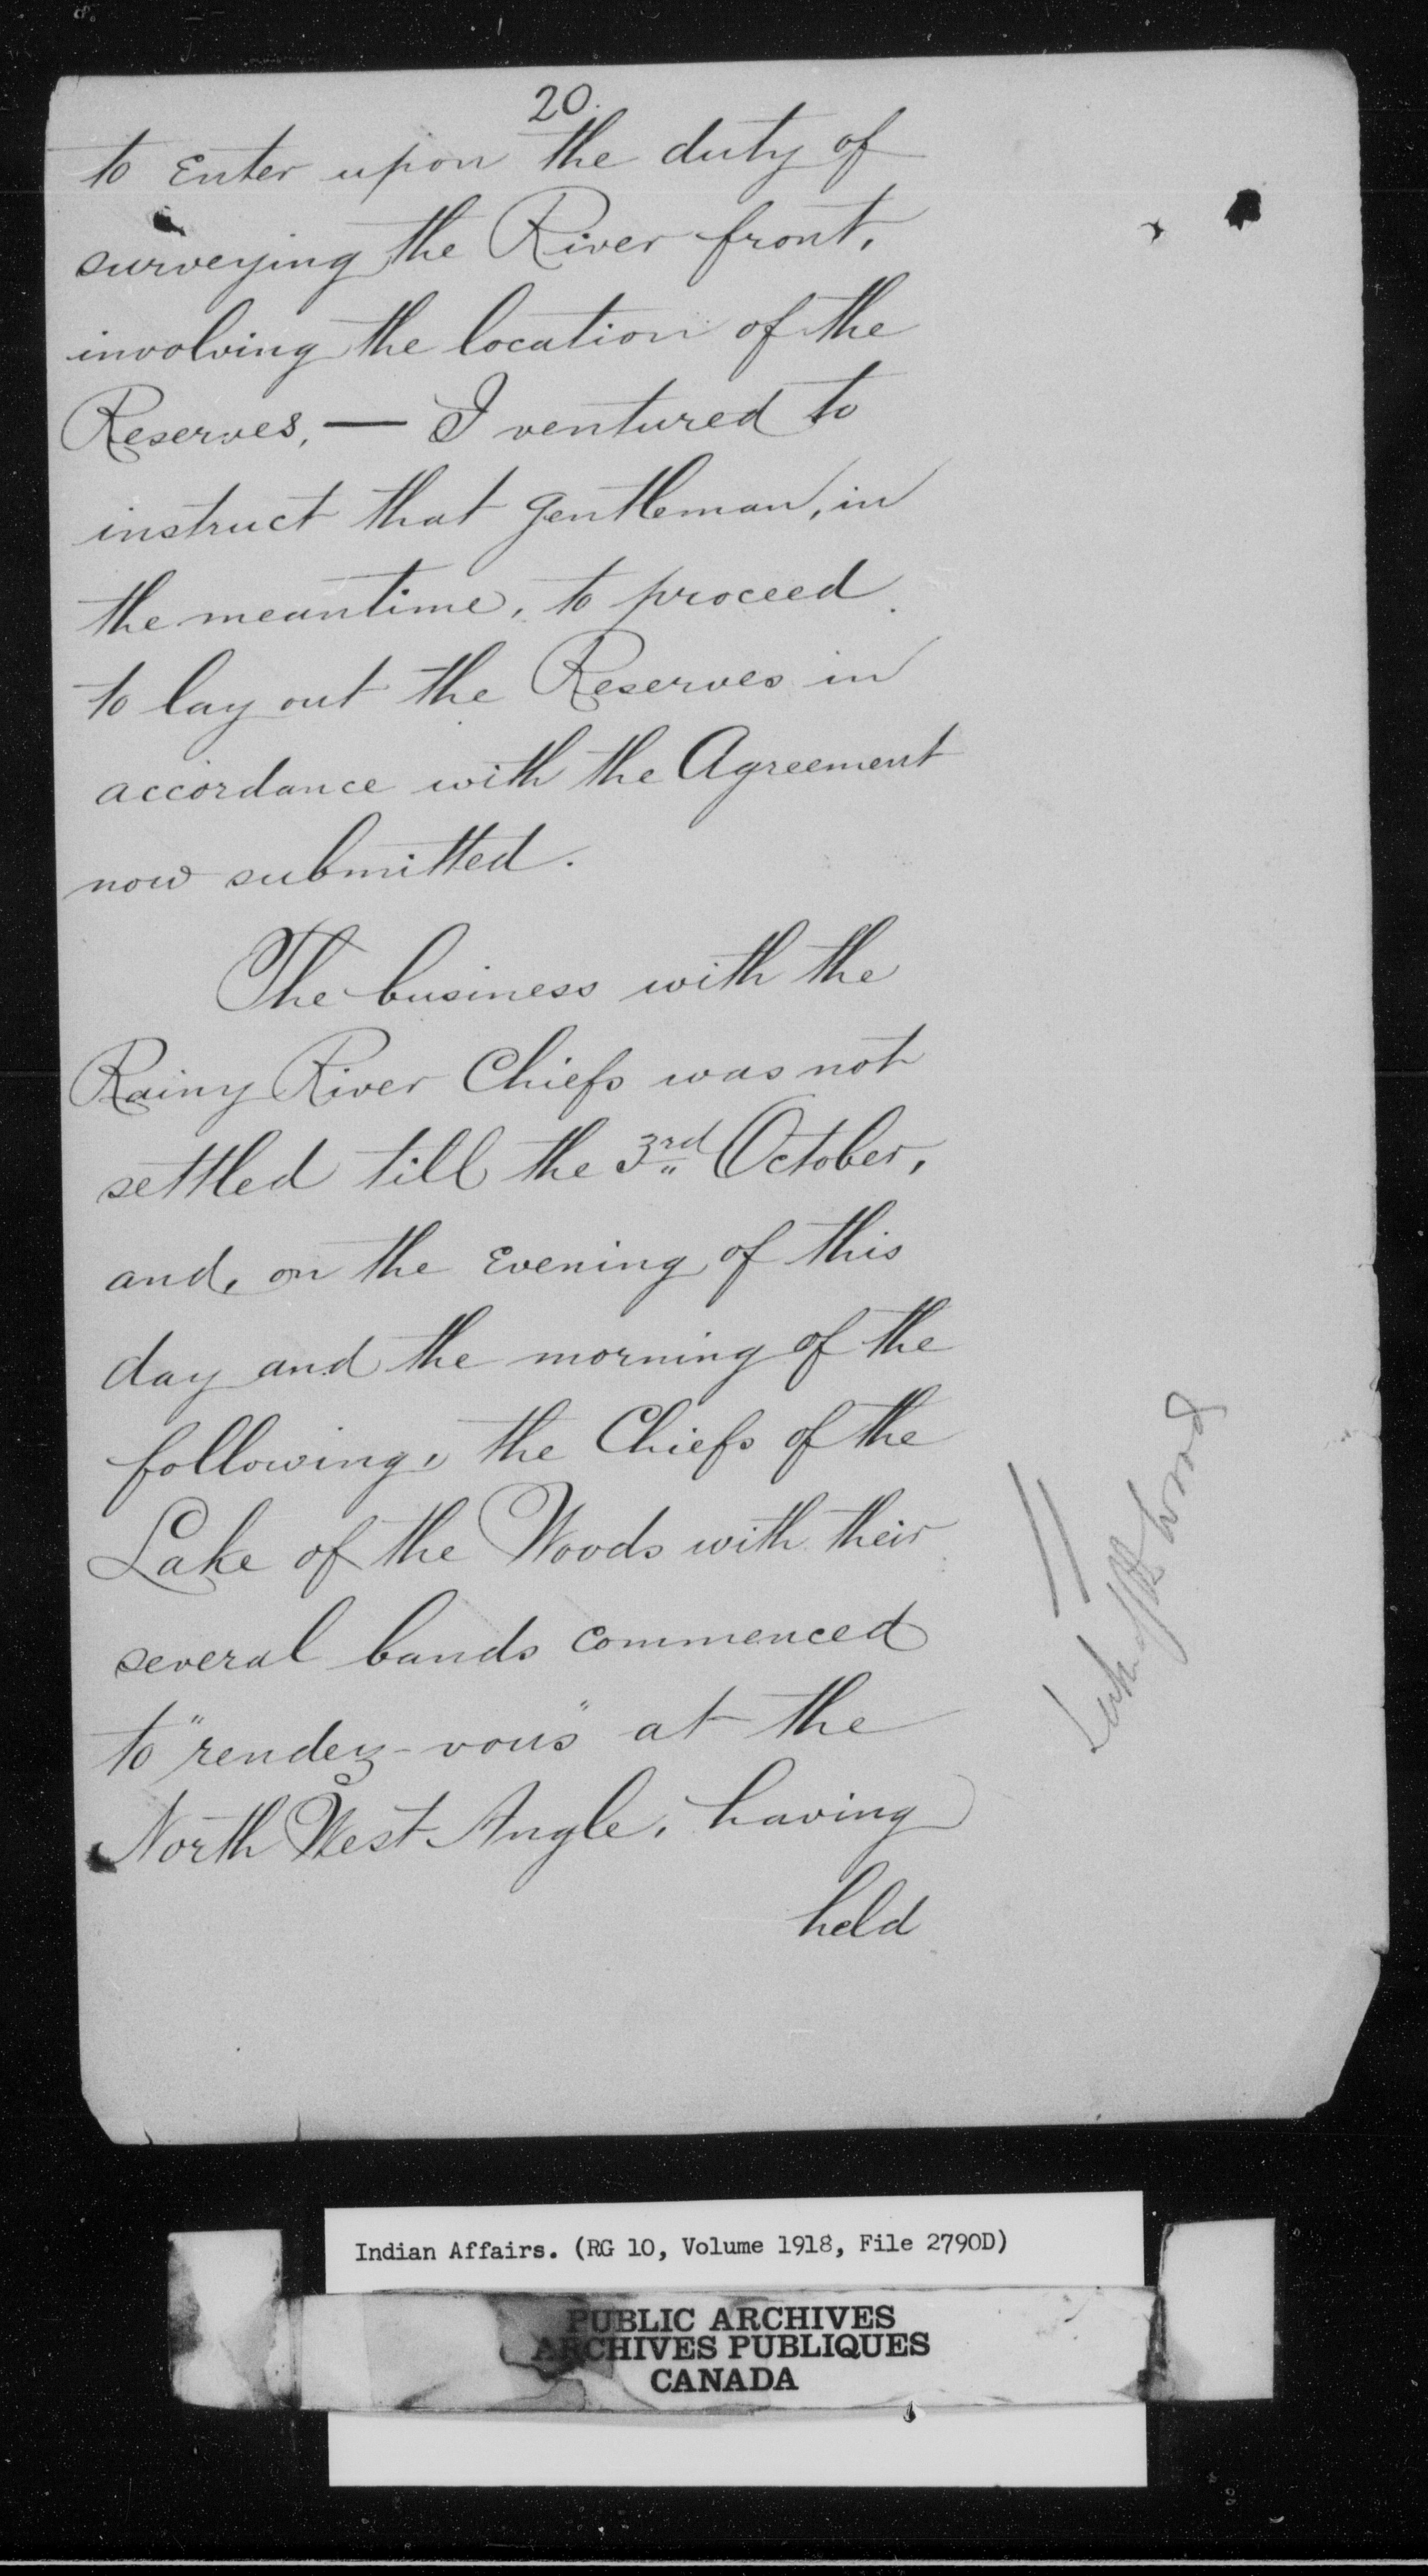 20.
to Enter upon the duty of
surveying the River front,
involving the location of the
Reserves, — I ventured to
instruct that gentleman, in
the meantime, to proceed
to lay out the Reserves in
accordance with the Agreement
now submitted.
The business with the
Rainy River Chiefs was not
settled till the 3rd October,
and, on the Evening of this
day and the morning of the
following, the Chiefs of the
Lake of the Woods with their
several bands commenced
to "rendez-vous" at the
North West Angle, having
held
Lake of the Wood
Indian Affairs. (RG 10, Volume 1918, File 2790D)
PUBLIC ARCHIVES
ARCHIVES PUBLIQUES
CANADA